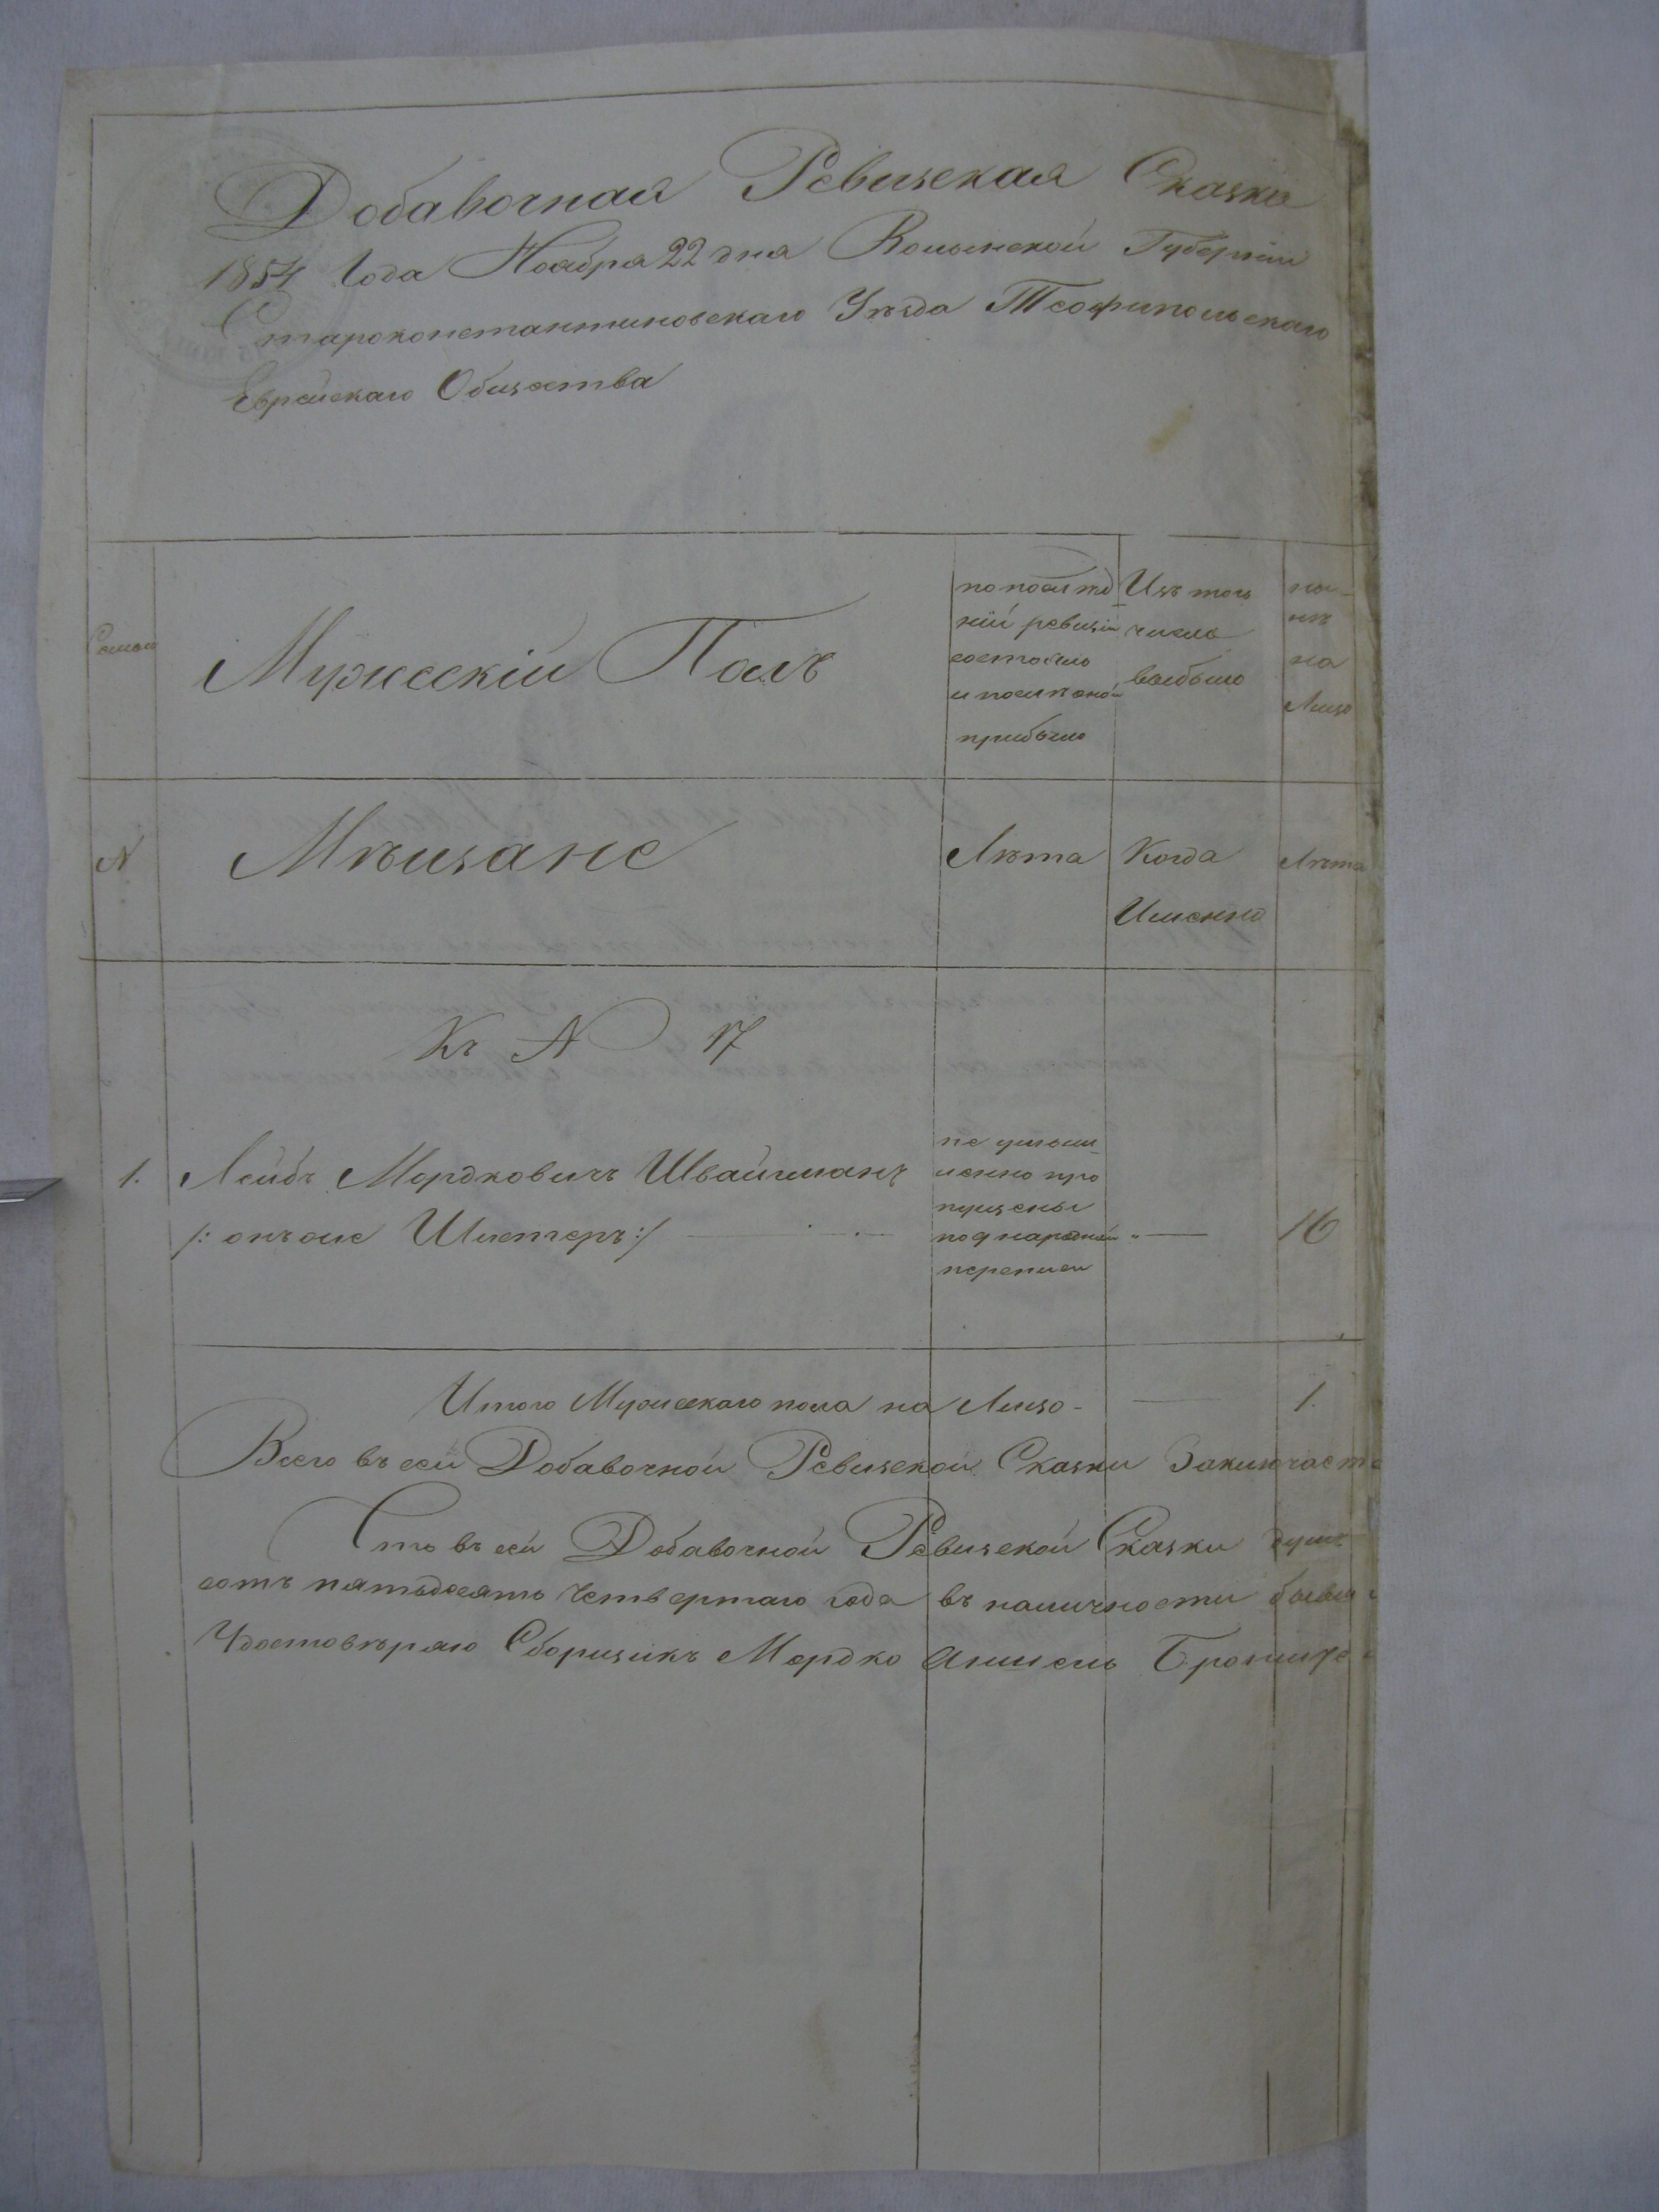 Добавочная Ревизская Сказка
1854 Года Ноября 22 дня Волынской Губернии
Староконстантиновскаго Уѣзда Теофипольскаго
Еврейскаго Общества
Семьи
Мужескій Полъ
по послѣд
ней ревизіи
состояло
и после оной
прибыло
Изъ того
числа
выбыло
ны-
нѣ
на
Лицо
N
Мѣщане
Лѣта
Когда
Именно
Лѣта
Къ N 17
1. Лейбъ Мордковичъ Швайгманъ
/: онъ же Шмстеръ :/
не умыш
ленно про
пущены
по 9 народной
переписи
16
Итого Мужескаго пола на Лицо - 1.
Всего въ сей Добавочной Ревизской Сказки Заключаетс
Что въ сей Добавочной Ревизской Сказки душъ
сотъ пятьдесятъ Четвертаго года въ наличности бывш
Удостовѣряю Сборщикъ Мордко